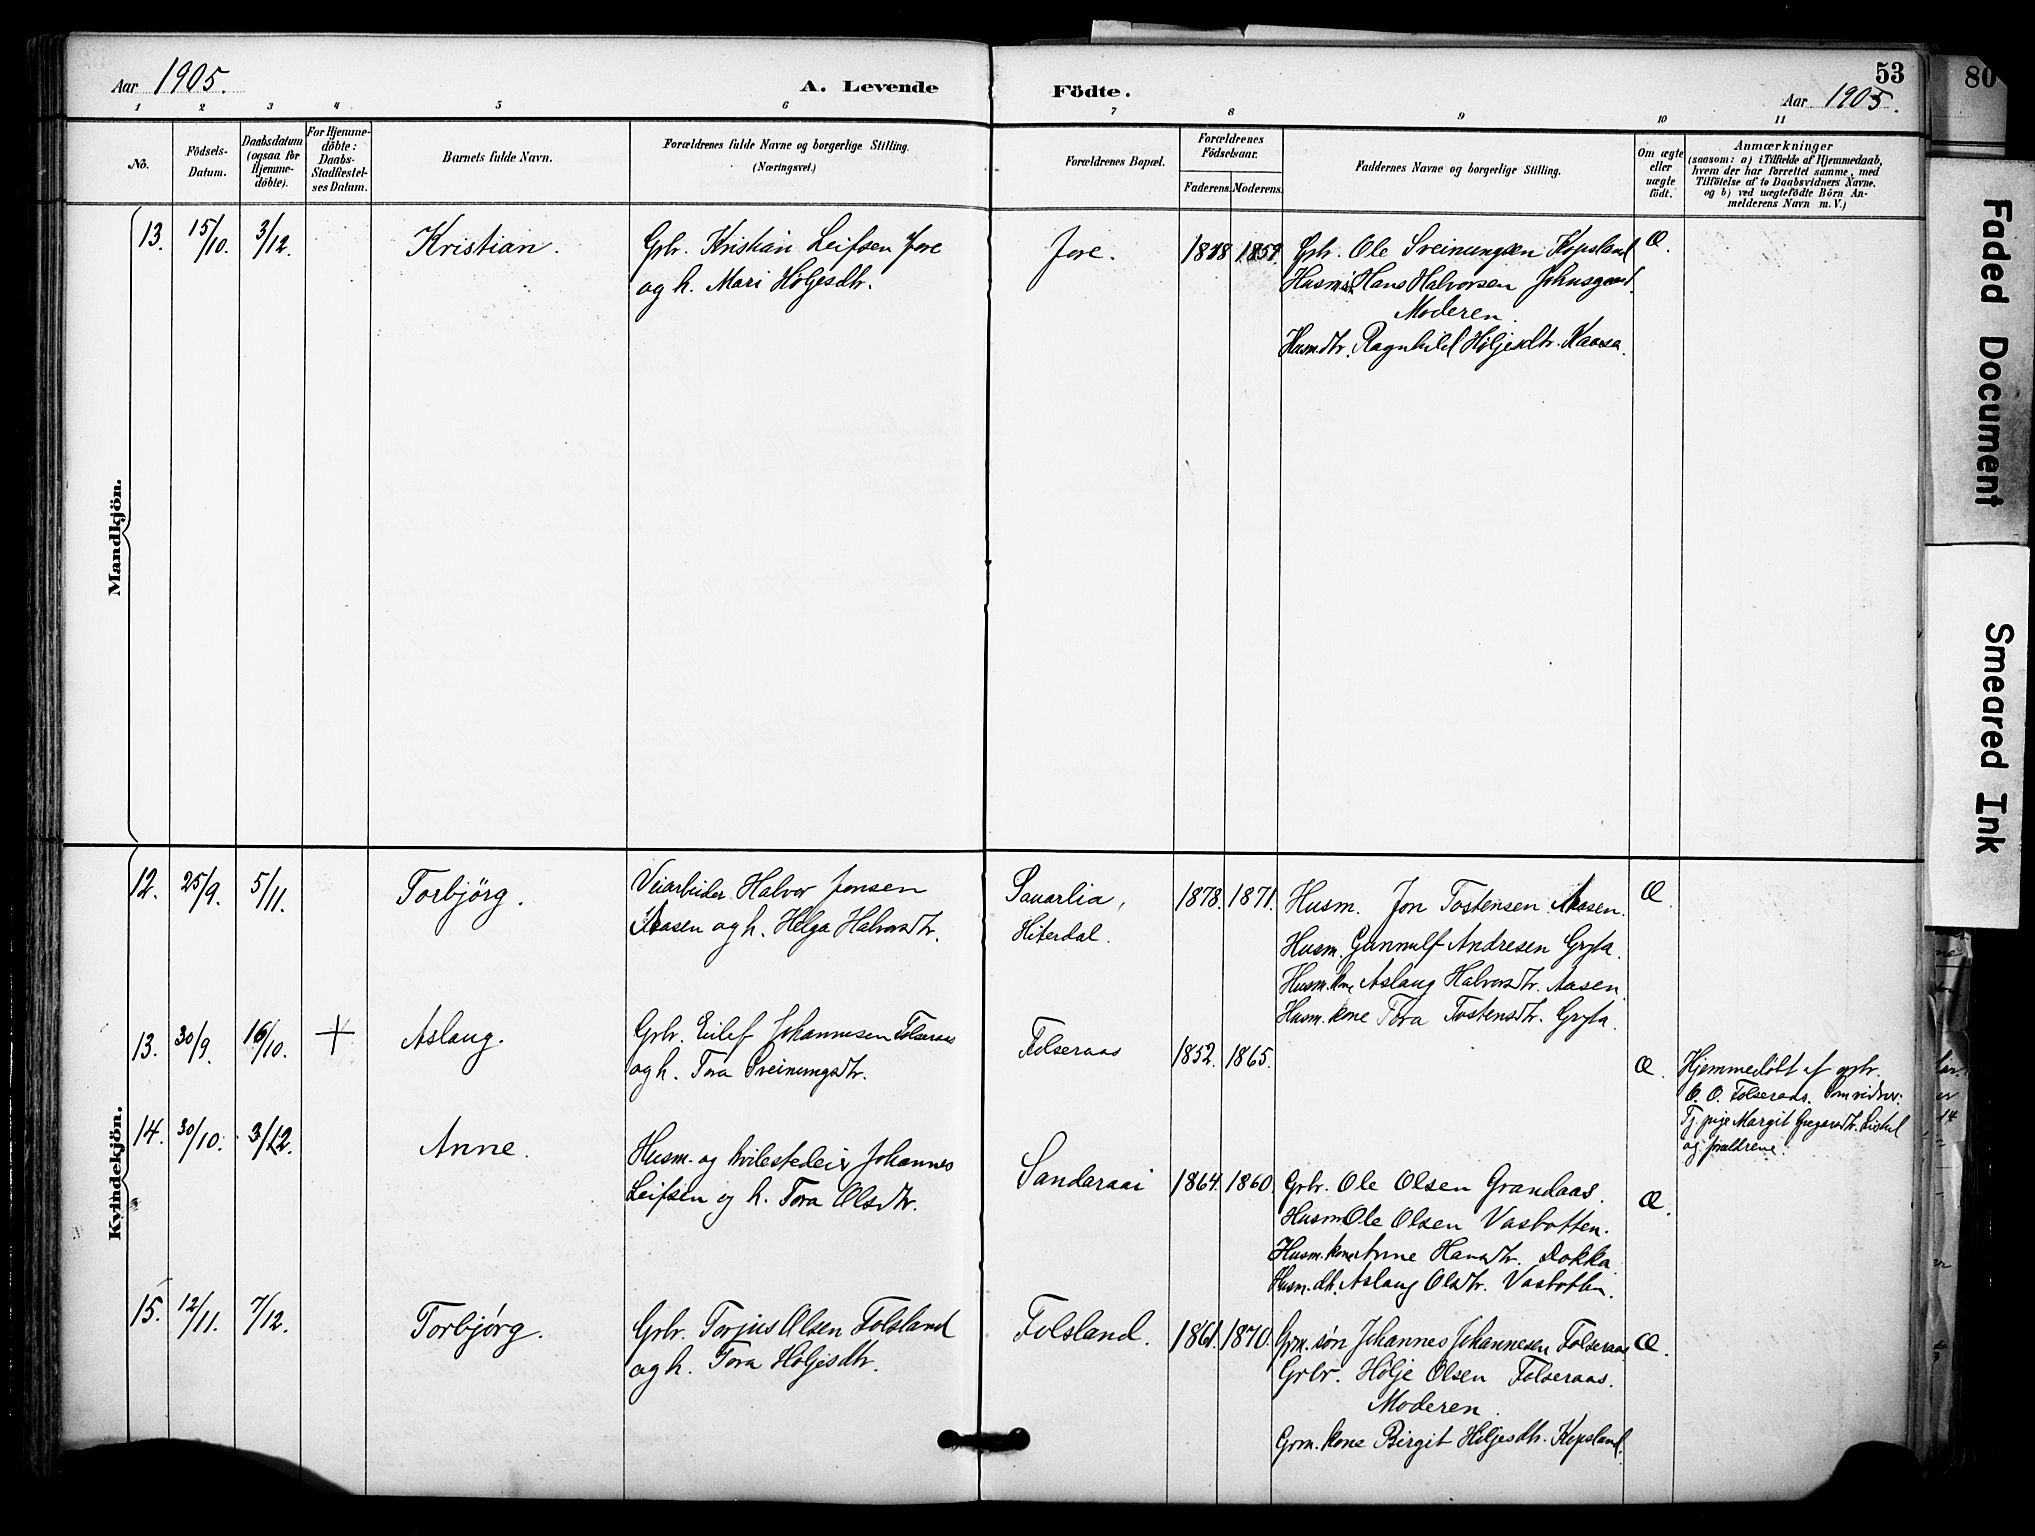 Aar 1905.
A. Levende Födte.
Aar 1905.
53
80
1 2 3 4 5 6 7 8 9 10 11
No.
Födsels-Datum.
Daabsdatum (ogsaa for Hjemme-döbte).
For Hjemme-döbte: Daabs-Stadfæstel-ses Datum.
Barnets fulde Navn.
Forældrenes fulde Navne og borgerlige Stilling.
(Næringsvei.)
Forældrenes Bopæl.
Forældrenes Födselsaar.
Faderens. Moderens.
Faddernes Navne og borgerlige Stilling.
Om ægte eller uægte født.
Anmærkninger
(saasom: a) i Tilfælde af Hjemmedaab,
hvem der har forrettet samme, med
Tilføielse af to Daabsvidners Navne,
og b) ved uægtefödte Börn An-
melderens Navn m. V.)
Mandkjön.
13. 15/10. 3/12. Kristian.
Grbr. Kristian Leifsen Jore
og h. Mari Höljesdtr.
Jore. 1848 1859.
Grbr. Ole Sveinungsen Kopsland
Husm. Hans Halvorsen Johnsgaard.
Moderen.
Husm.dtr. Ragnhild Höljesdtr. Kaasa.
Æ.
Kvindekjön.
12. 25/9. 5/11. Torbjörg.
Veiarbeider Halvor Jonsen
Aasen og h. Helga Halvorsdtr.
Sauarlia,
Hiterdal.
1878. 1871.
Husm. Jon Tostensen Aasen.
Husm. Gunnulf Andresen Gryta.
Husm. kone Aslaug Halvorsdtr. Aasen.
Husm. kone Tora Tostensdtr. Gryta.
Æ.
13. 30/9. 16/10. + Aslaug.
Grbr. Eilef Johannesen Folseraas
og h. Tora Sveinungsdtr.
Folseraas 1852. 1865.
Æ.
Hjemmedöbt af grbr.
O. O. Folseraas. Som vidner:
Tj. pige Margit Gregarsdtr.
og forældrene.
14. 30/10. 3/12. Anne.
Husm. og hvilestedeier Johannes
Leifsen og h. Tora Olsdtr.
Sandaraai 1864. 1860.
Grbr. Ole Olsen Grandaas.
Husm. Ole Olsen Vasbotten.
Husm. kone Anne Hansdtr. Dokka.
Husm. dtr. Aslaug Olsdtr. Vasbotten.
Æ.
15. 12/11. 7/12. Torbjörg.
Grbr. Torjus Olsen Folsland
og h. Tora Höljesdtr.
Folsland. 1861. 1870.
Grm. sön Johannes Johannesen Folseraas
Grbr. Hölje Olsen Folseraas.
Moderen.
Grm. kone Birgit Höljesdtr. Kopsland.
Æ.
Faded Document
Smeared Ink